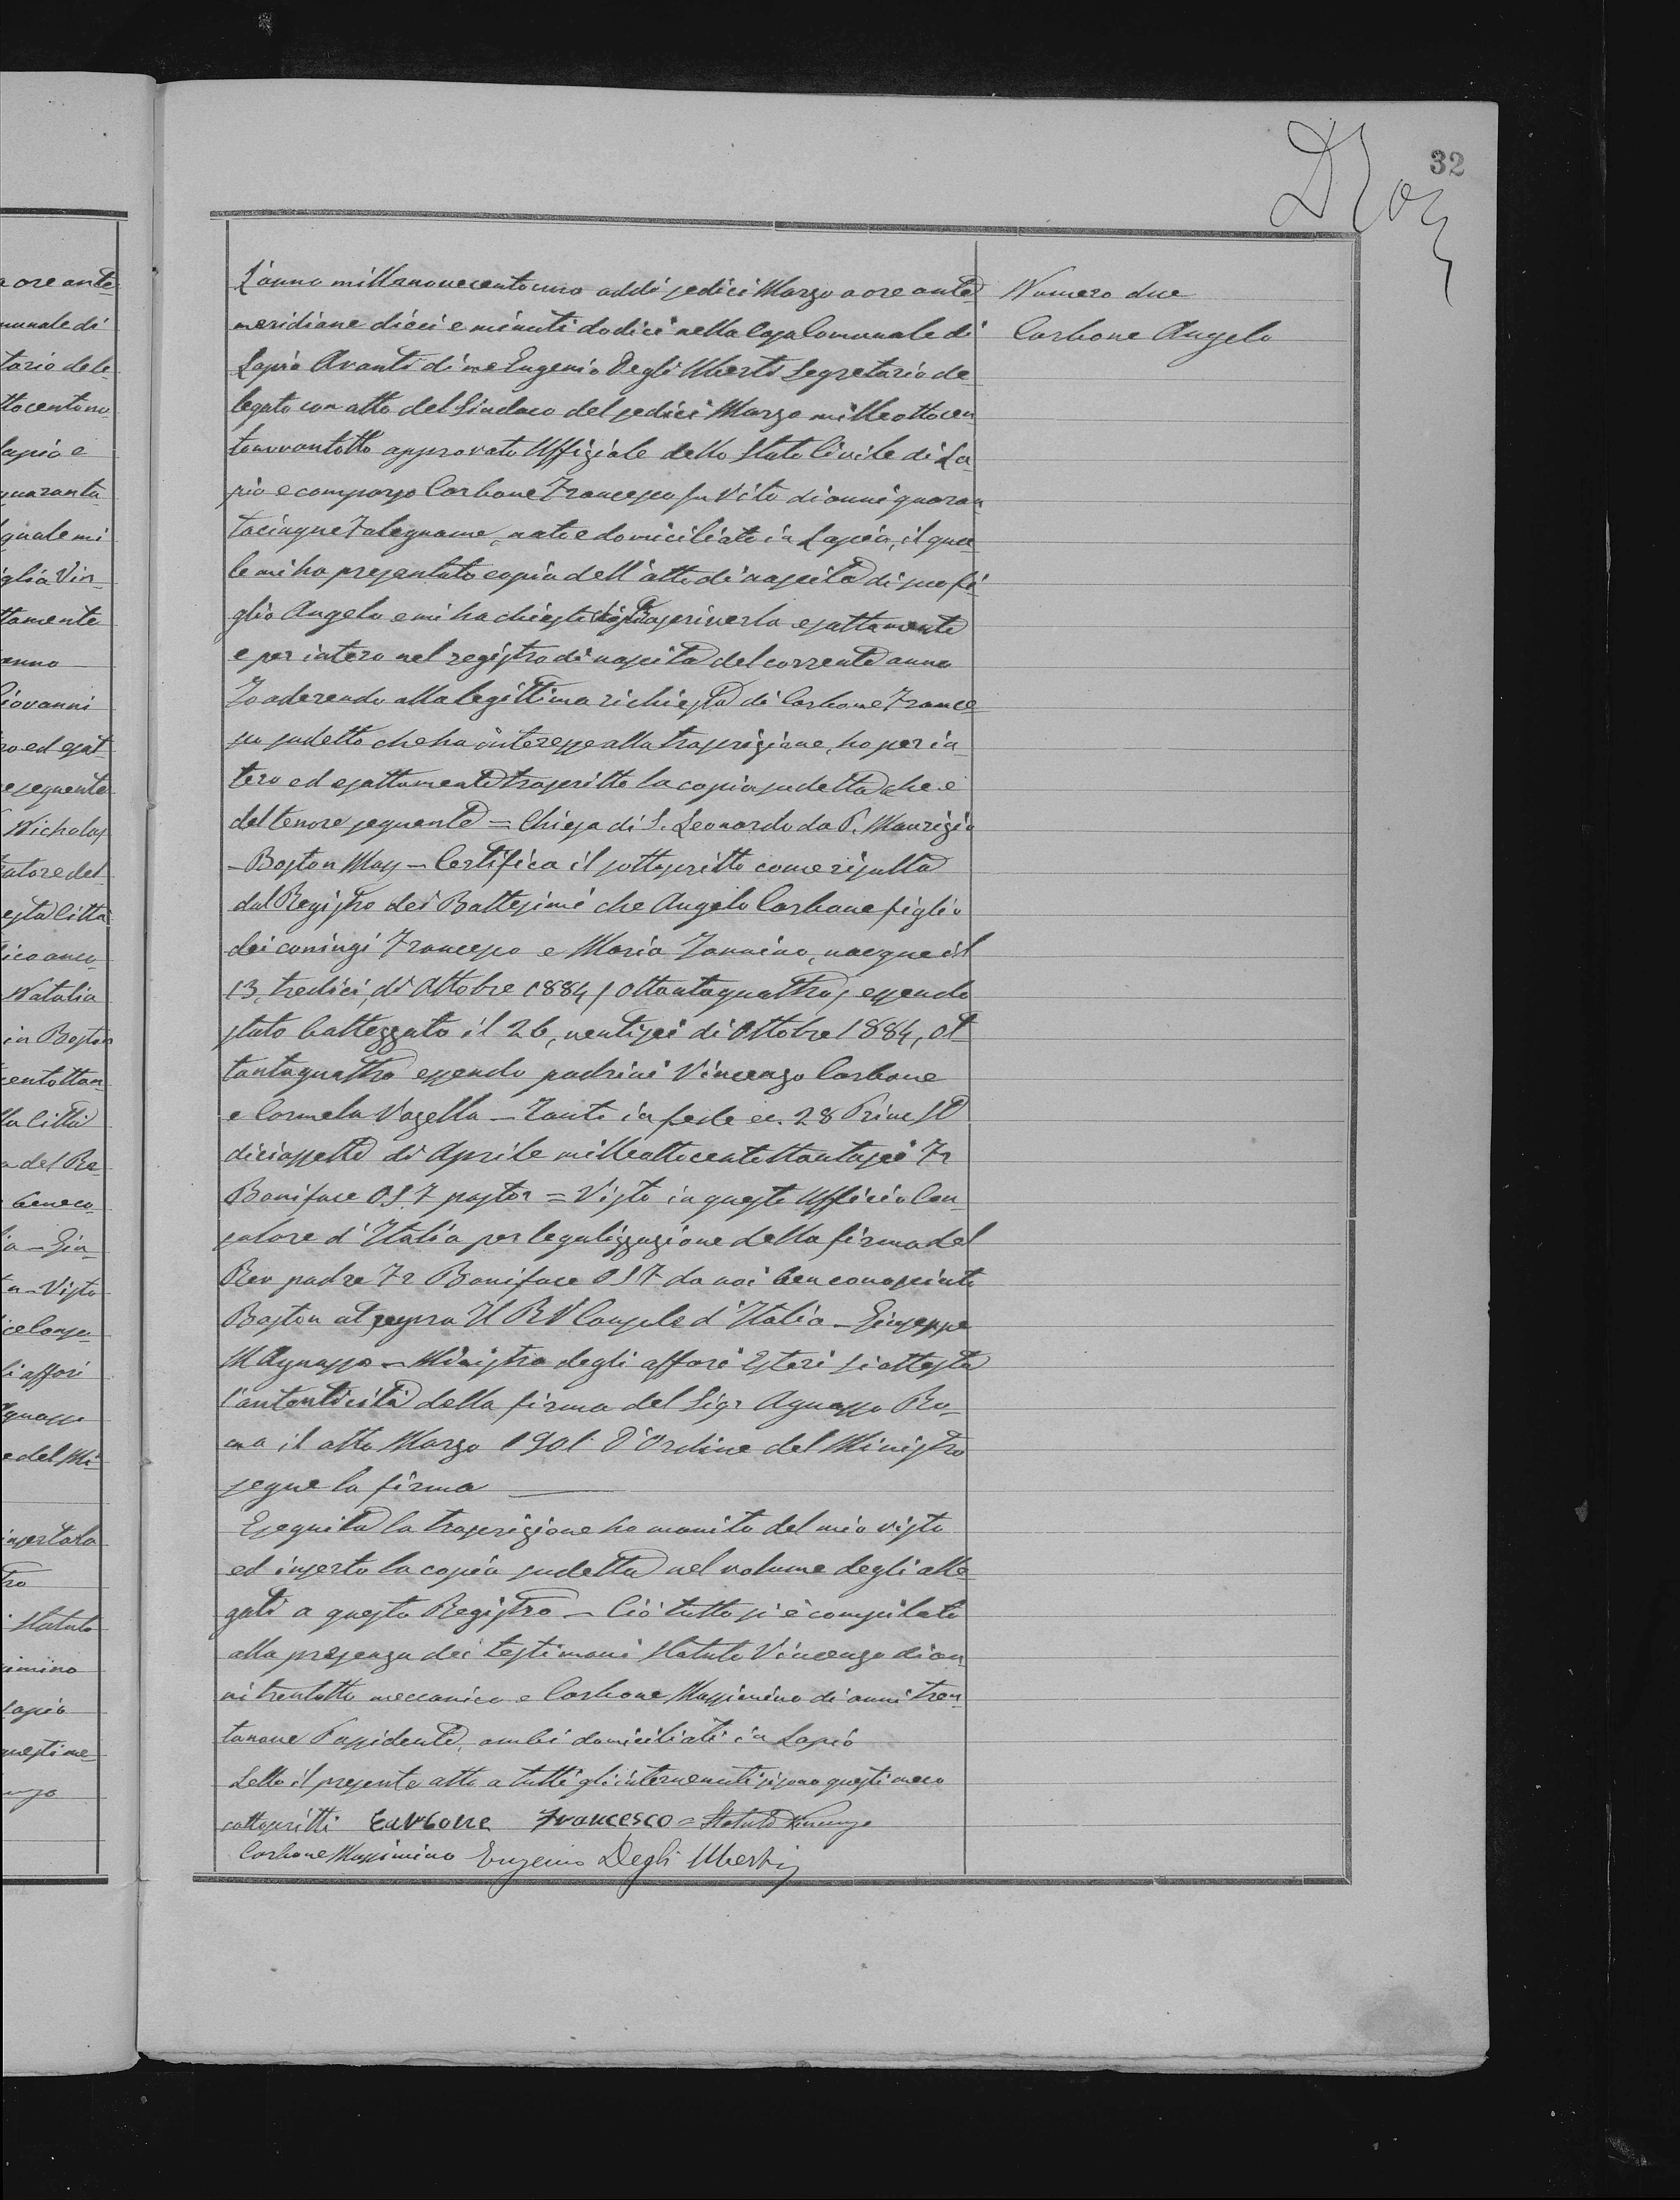 32
L'anno millenovecentouno addì sedici Marzo a ore ante
meridiane dieci e minuti dodici nella Casa Comunale di
Lapio Avanti di me Eugenio Degli Uberti Segretario de
legato con atto del Sindaco del sedici Marzo milleottocen
tonovantotto approvato Uffiziale dello Stato Civile di La
pio e comparso Carbone Francesco fu Vito di anni quaran
tacinque Falegname, nato e domiciliato in Lapio, il qua
le mi ha presentato copia dell'atto di nascita di suo fi
glio Angelo e mi ha chiesto di trascriverla esattamente
e per intero nel registro di nascita del corrente anno
Io aderendo alla legittima richiesta di Carbone France
sco sudetto che ha interesse alla trascrizione, ho per in
tero ed esattamente trascritto la copia sudetta che è
del tenore seguente = Chiesa di S. Leonardo da P. Maurizio
- Boston Mass - Certifica il sottoscritto come risulta
dal Registro dei Battesimi che Angelo Carbone figlio
dei coniugi Francesco e Maria Iannino, nacque il
13, tredici, di Ottobre 1884, ottantaquattro, essendo
stato battezzato il 26, ventisei di Ottobre 1884, ot
tantaquattro essendo padrini Vincenzo Carbone
e Carmela Vozella - Tanto in fede ec. 28 Prince St
diciassette di Aprile milleottocentottantasei Fr
Boniface OSF pastor = Visto in questo Ufficio Con
solare d'Italia per legalizzazione della firma del
Rev padre Fr Boniface OSF da noi ben conosciuto
Boston ut supra Il R V Console d'Italia - Giuseppe
M Agnasso - Ministro degli affari Esteri si attesta
l'autenticità della firma del Sigr Agnasso Ro-
ma il otto Marzo 1901 D'Ordine del Ministro
segue la firma
Eseguita la trascrizione ho munito del mio visto
ed inserto la copia sudetta nel volume degli alle
gati a questo Registro - Ciò tutto si è compilato
alla presenza dei testimoni Statuto Vincenzo di an
ni trentotto meccanico e Carbone Massimino di anni tren
tanove Possidente, ambi domiciliati in Lapio
Letto il presente atto a tutti gli intervenuti si sono questi meco
sottoscritti Carbone Francesco = Statuto Vincenzo
Carbone Massimino Eugenio Degli Uberti
Numero due
Carbone Angelo